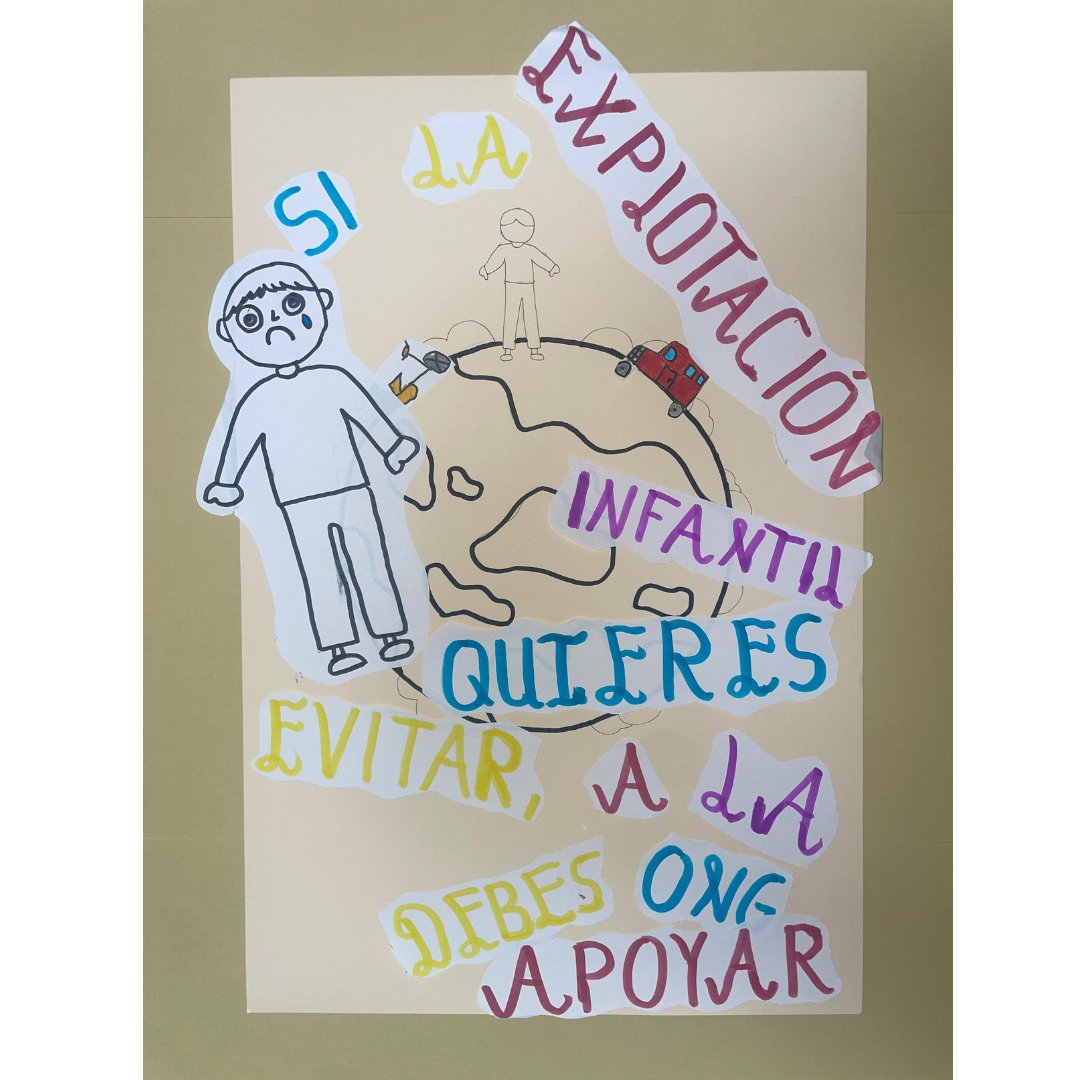 SI LA EXPLOTACIÓN
INFANTIL
QUIERES
EVITAR,
A LA
ONG
DEBES
APOYAR